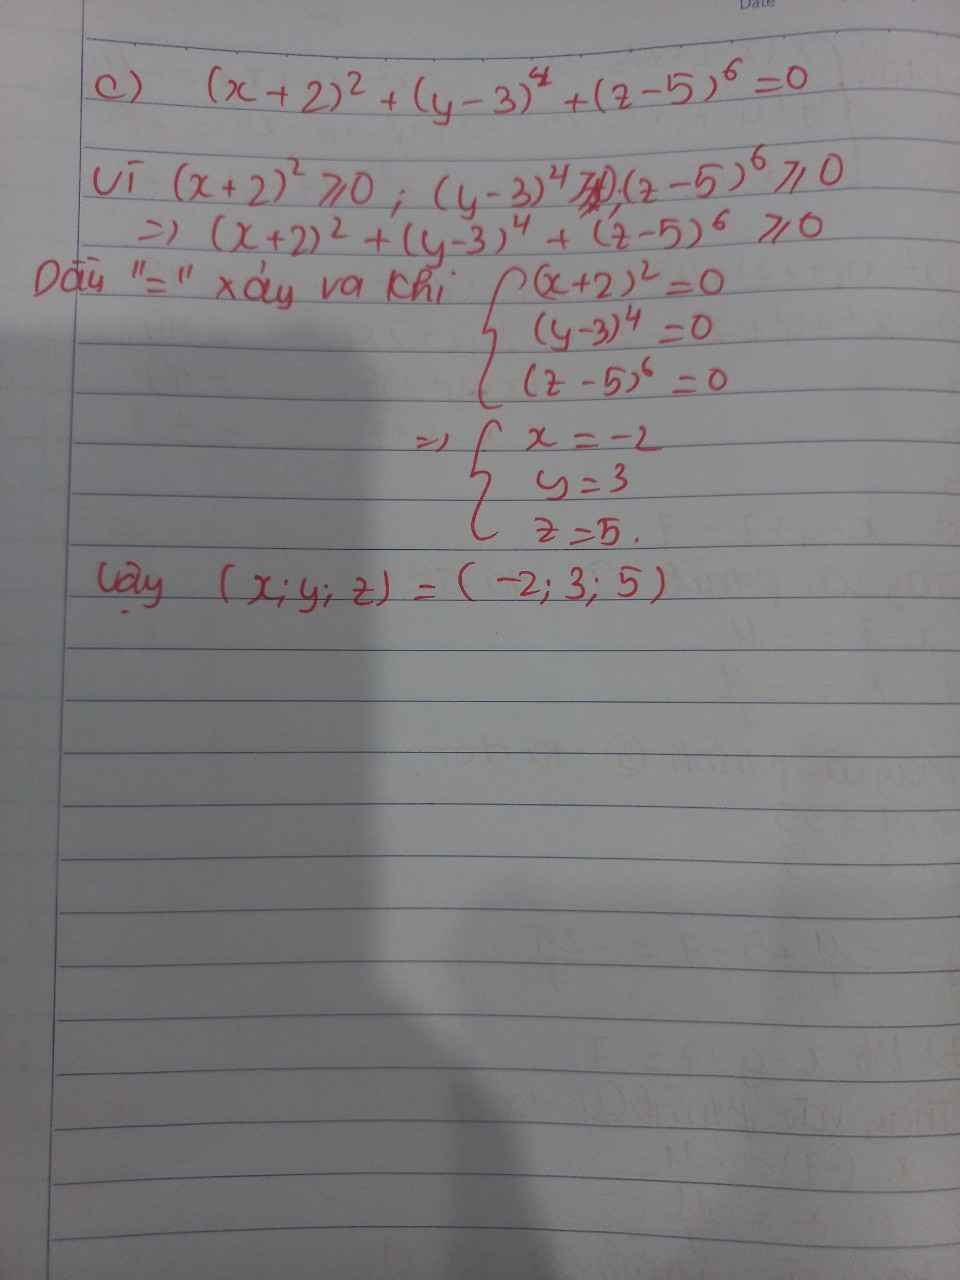 Date
c) (x+2)² + (y-3)⁴ + (z-5)⁶ = 0
Vì (x+2)² ⩾ 0 ; (y-3)⁴ ⩾ 0; (z-5)⁶ ⩾ 0
=> (x+2)² + (y-3)⁴ + (z-5)⁶ ⩾ 0
Dấu "=" xảy ra khi { (x+2)² = 0
(y-3)⁴ = 0
(z-5)⁶ = 0
=> { x = -2
y = 3
z = 5.
Vậy (x; y; z) = (-2; 3; 5)